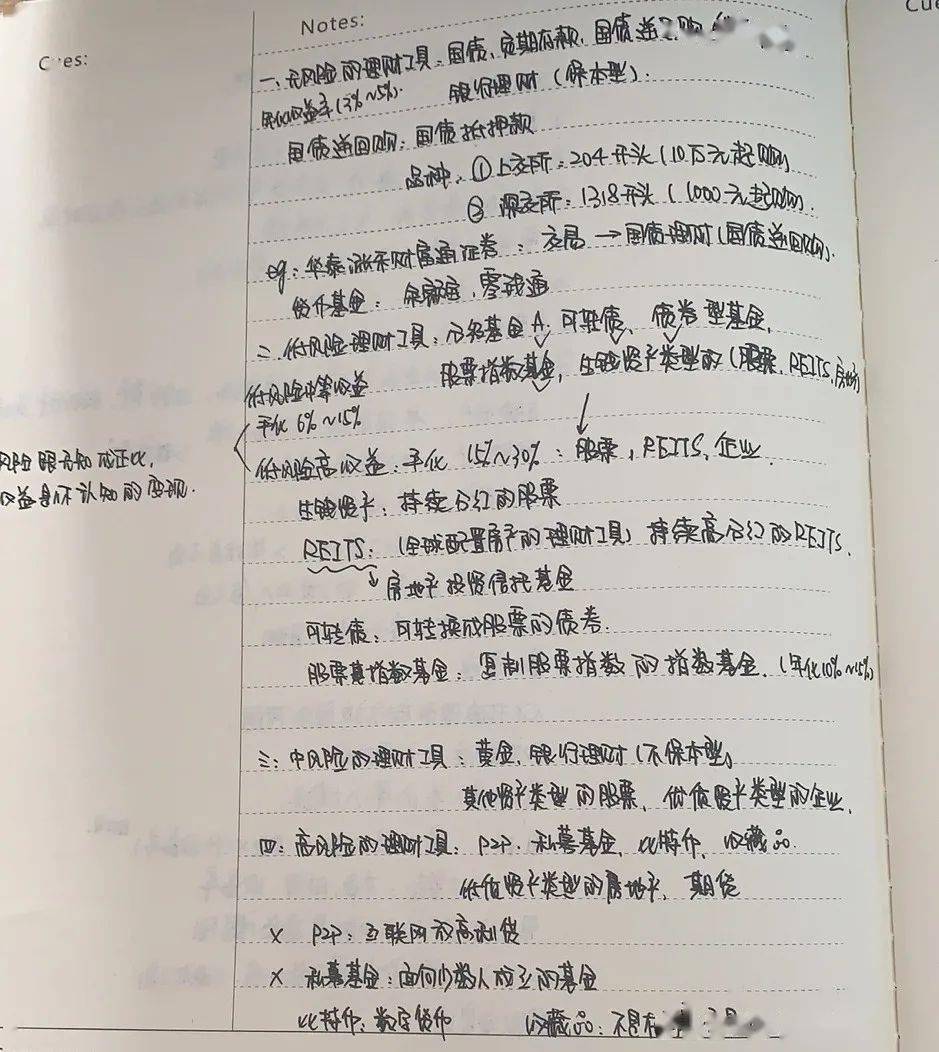 Notes:
Cues:
Cue
一、无风险的理财工具：国债、定期存款、国债逆回购
年化收益率(3%~5%). 银行理财（保本型）.
国债逆回购：国债抵押款
品种：①上交所：204开头（10万元起购）
②深交所：1318开头（1000元起购）.
eg：华泰涨乐财富通证券：交易→国债理财（国债逆回购）.
货币基金：余额宝、零钱通
二、低风险理财工具：分级基金A、可转债、债券型基金、
股票指数基金、生钱资产类型的（股票、REITS、房地产）
低风险中等收益
年化6%~15%
低风险高收益：年化15%~30%：股票、REITS、企业.
风险跟无知成正比,
收益是你认知的变现.
生钱资产：持续分红的股票
REITS：（全球配置房产的理财工具）持续高分红的REITS.
房地产投资信托基金
可转债：可转换成股票的债券.
股票基指数基金：复制股票指数的指数基金.（年化10%~15%）
三：中风险的理财工具：黄金、银行理财（不保本型）
其他资产类型的股票、优值资产类型的企业.
四：高风险的理财工具：P2P、私募基金、比特币、收藏品.
低值资产类型的房地产、期货
× P2P：互联网放高利贷
× 私募基金：面向少数人成立的基金
比特币：数字货币 收藏品：不具有